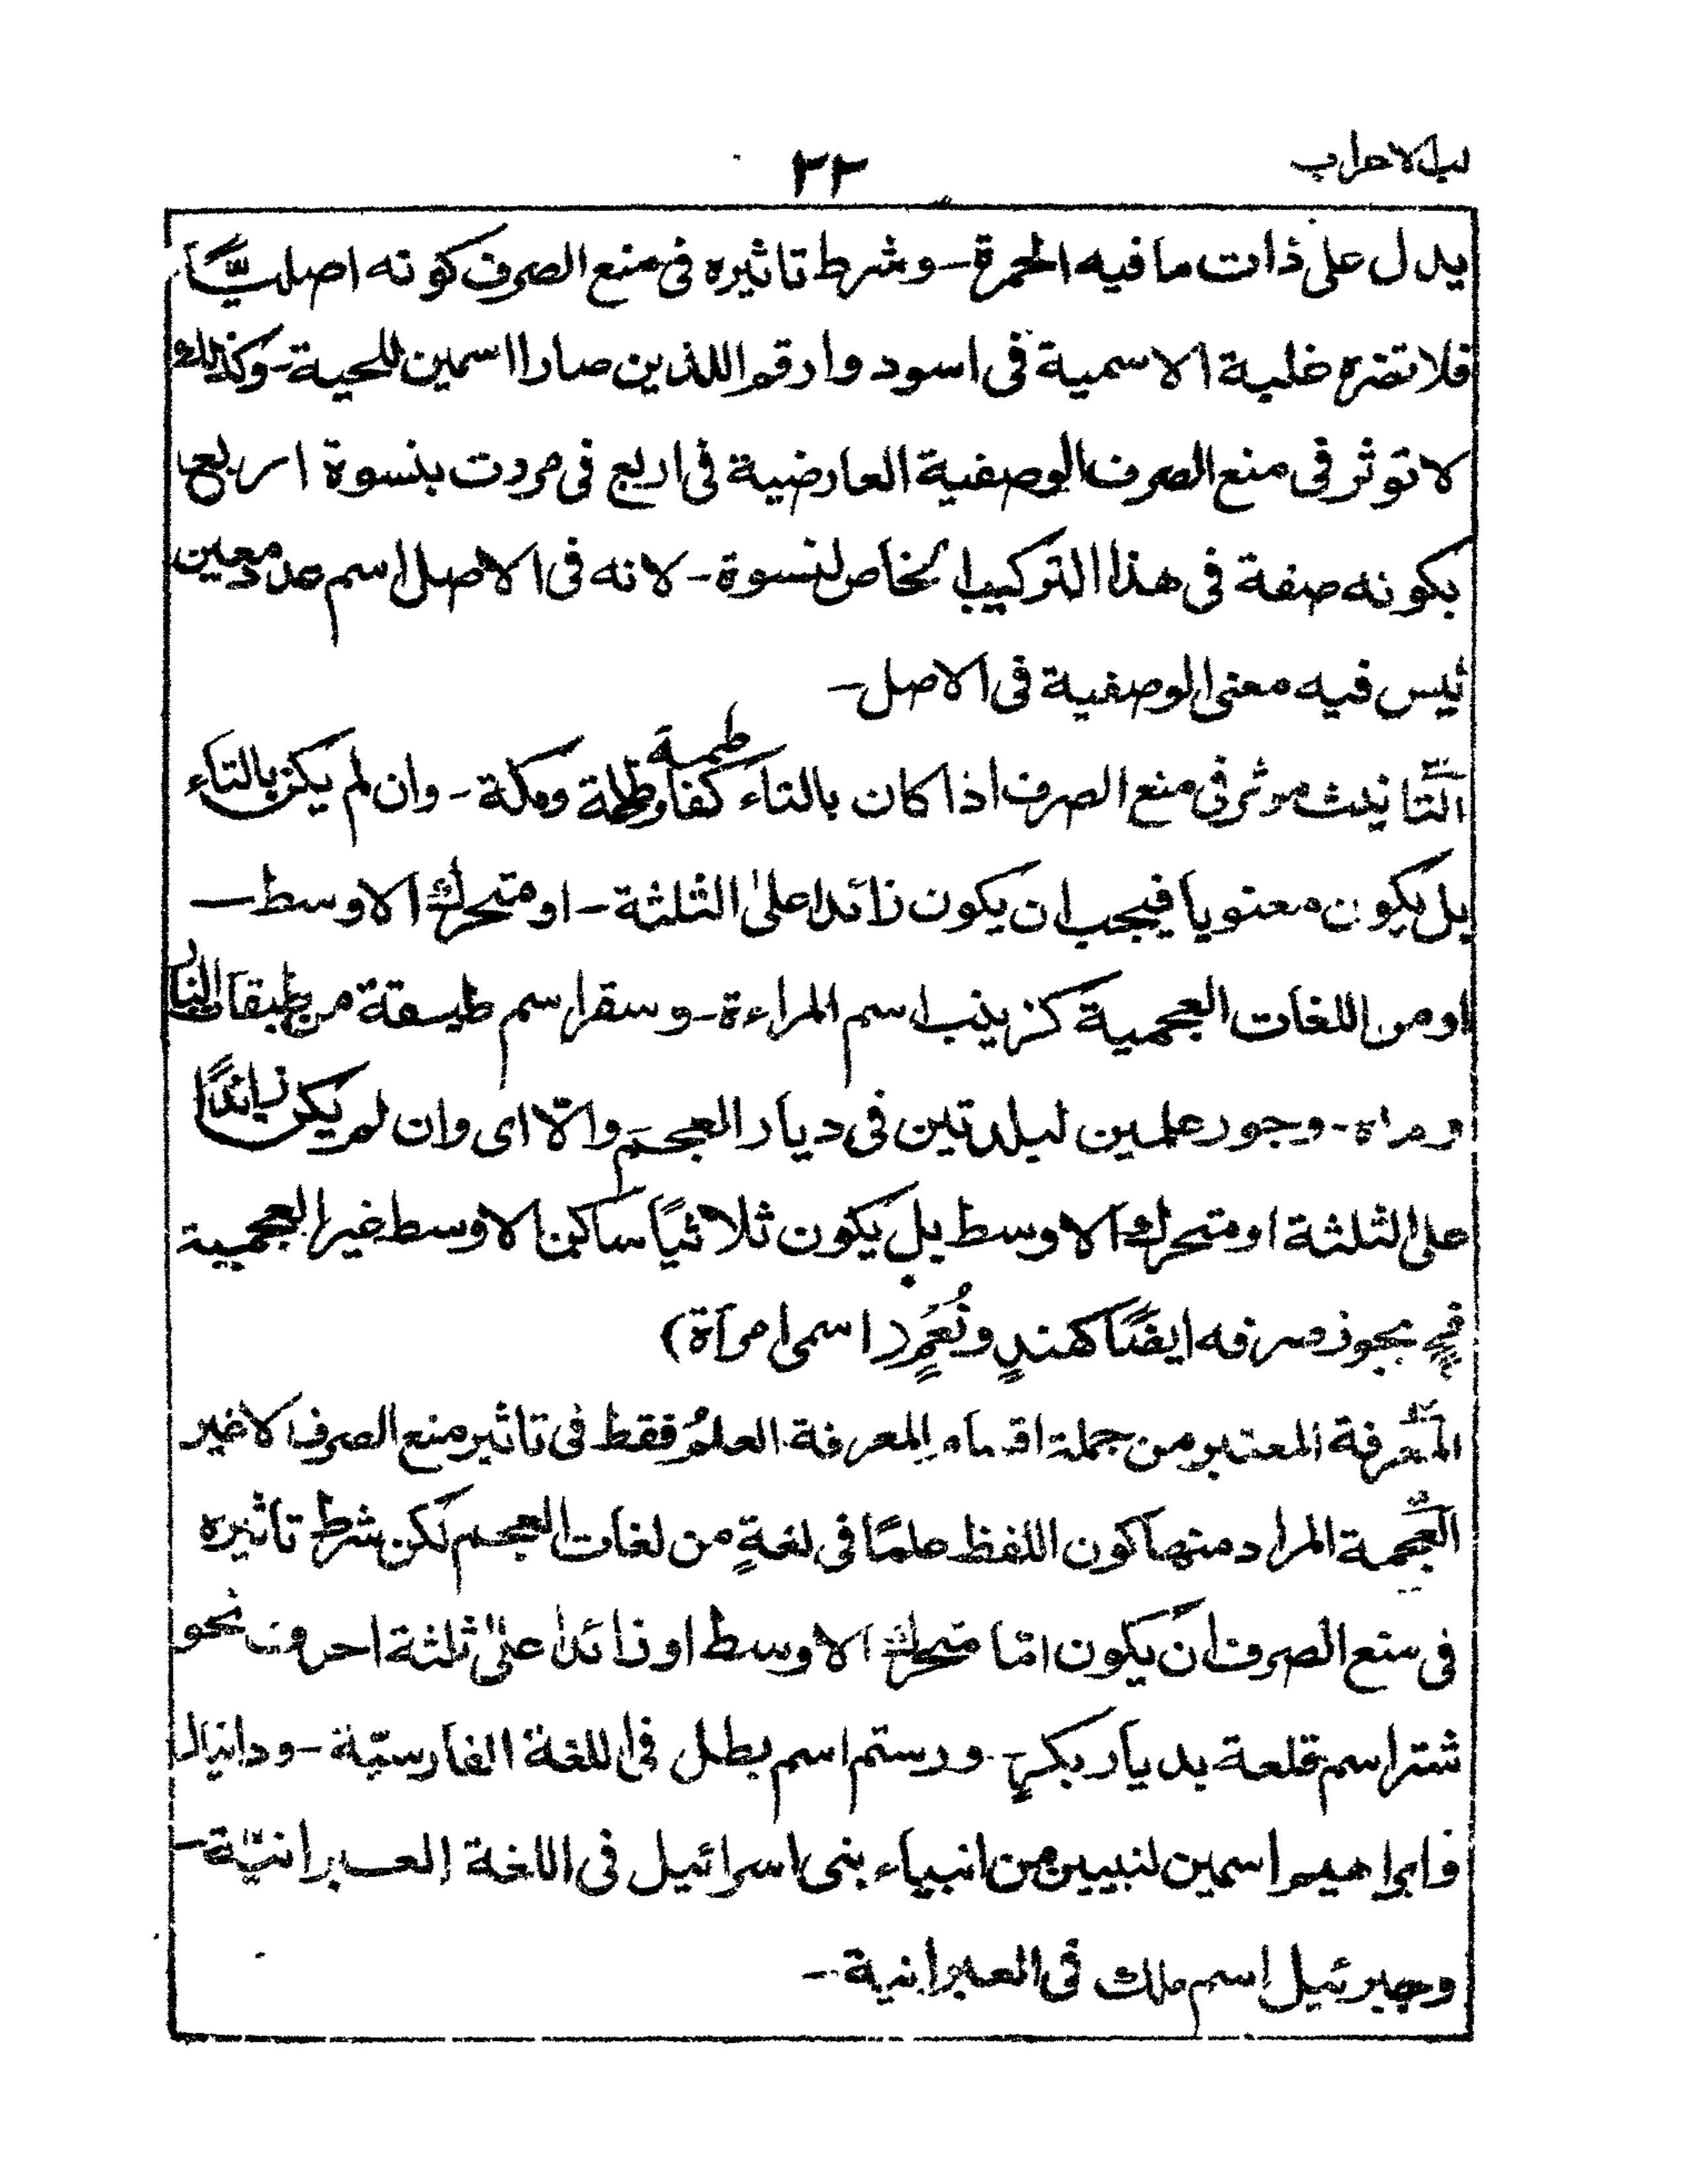 لب الاعراب
٣٢
يدل ل على ذات ما فيه الحمرة - وشرط تاثيره فى منع الصرف كونه اصليًّا
فلا تضره غلبة الاسمية فى اسود وارقم اللذين صارا اسمين للحية - وكذلك
لا توثر فى منع الصرف الوصفية العارضية فى اربع فى مررت بنسوة اربع
بكونه صفة فى هذا التركيب الخاص لنسوة - لانه فى الاصل اسم عدد معين
ليس فيه معنى الوصفية فى الاصل -
التانيث موثر فى منع الصرف اذا كان بالتاء كفاطمة ومكة - وان لم يكن بالتاء
بل يكون معنويا فيجب ان يكون زائدا على الثلثة - او متحرك الاوسط -
او من اللغات العجمية كزينب اسم المراءة - وسقر اسم طبقة من طبقات النار
و ماه - وجور علمين لبلدتين فى ديار العجم والّا اى وان لم يكن زائدًا
على الثلثة او متحرك الاوسط بل يكون ثلاثيًا ساكن الاوسط غير العجمية
فح يجوز صرفه ايضًا كهندٍ ونُعَمٍ (اسمى امرآة)
المعرفة المعتبر من جملة اقسام المعرفة العلمُ فقط فى تاثير منع الصرف لا غير
العجمة المراد منها كون اللفظ علمًا فى لغةٍ من لغات العجم لكن شرط تاثيره
فى منع الصرف ان يكون امّا متحرك الاوسط او زائدا على ثلثة احرف نحو
شتر اسم قلعة بديار بكرٍ - ورستم اسم بطل فى اللغة الفارسيّة - ودانيال
وابراهيم اسمين لنبيين من انبياء بنى اسرائيل فى اللغة العبرانيّة -
وجبرئيل اسم ملك فى العبرانية -